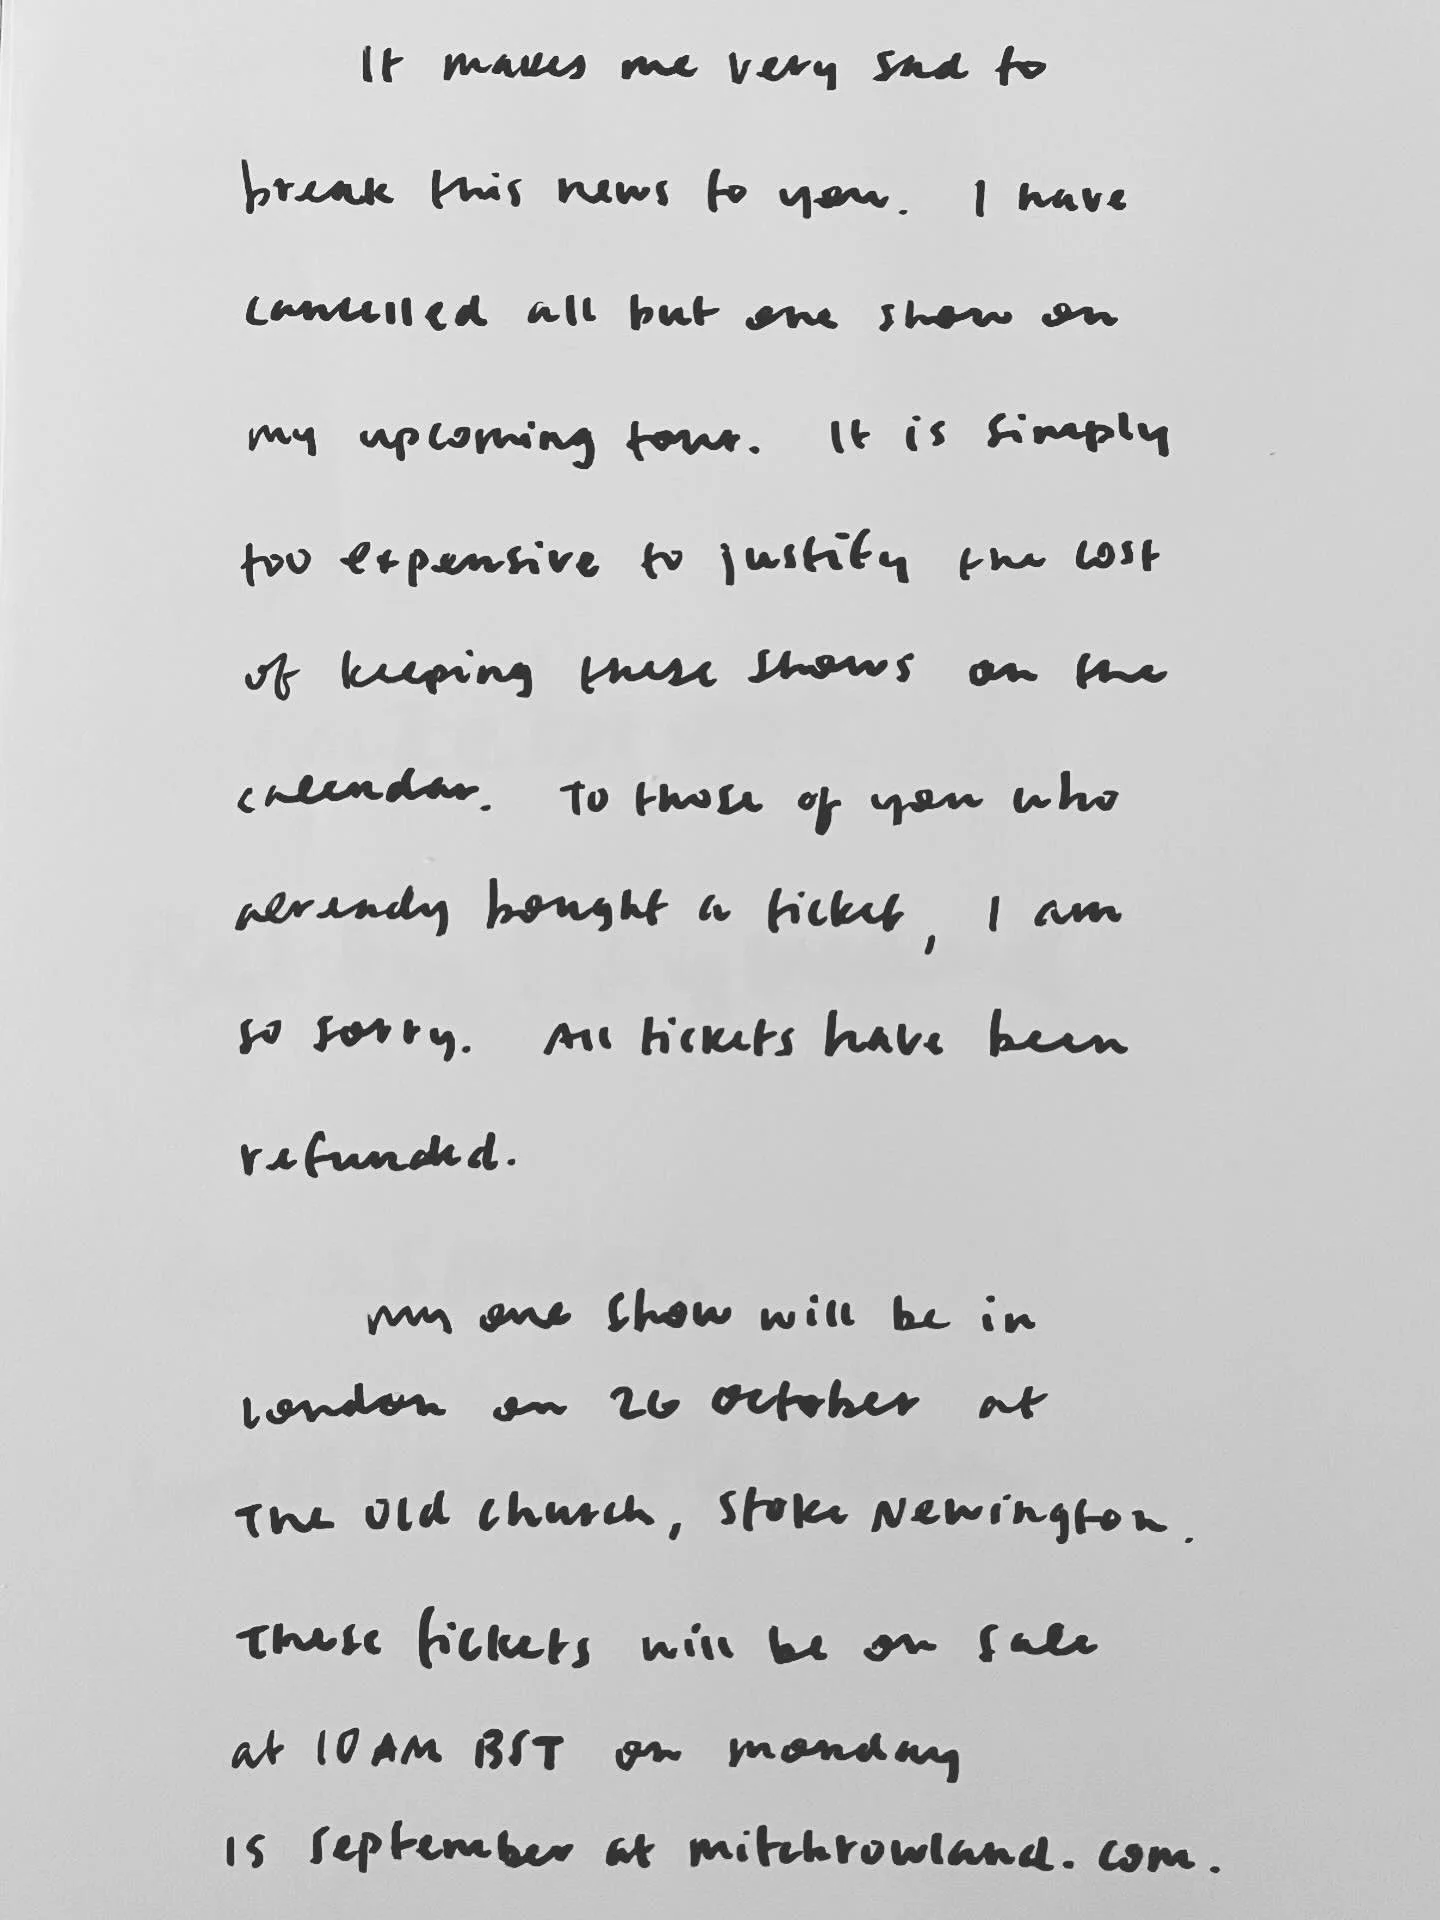 It makes me very sad to
break this news to you. I have
cancelled all but one show on
my upcoming tour. It is simply
too expensive to justify the cost
of keeping these shows on the
calendar. To those of you who
already bought a ticket, I am
so sorry. All tickets have been
refunded.
My one show will be in
London on 26 October at
The Old Church, Stoke Newington.
These tickets will be on sale
at 10 AM BST on monday
15 September at mitchrowland.com.